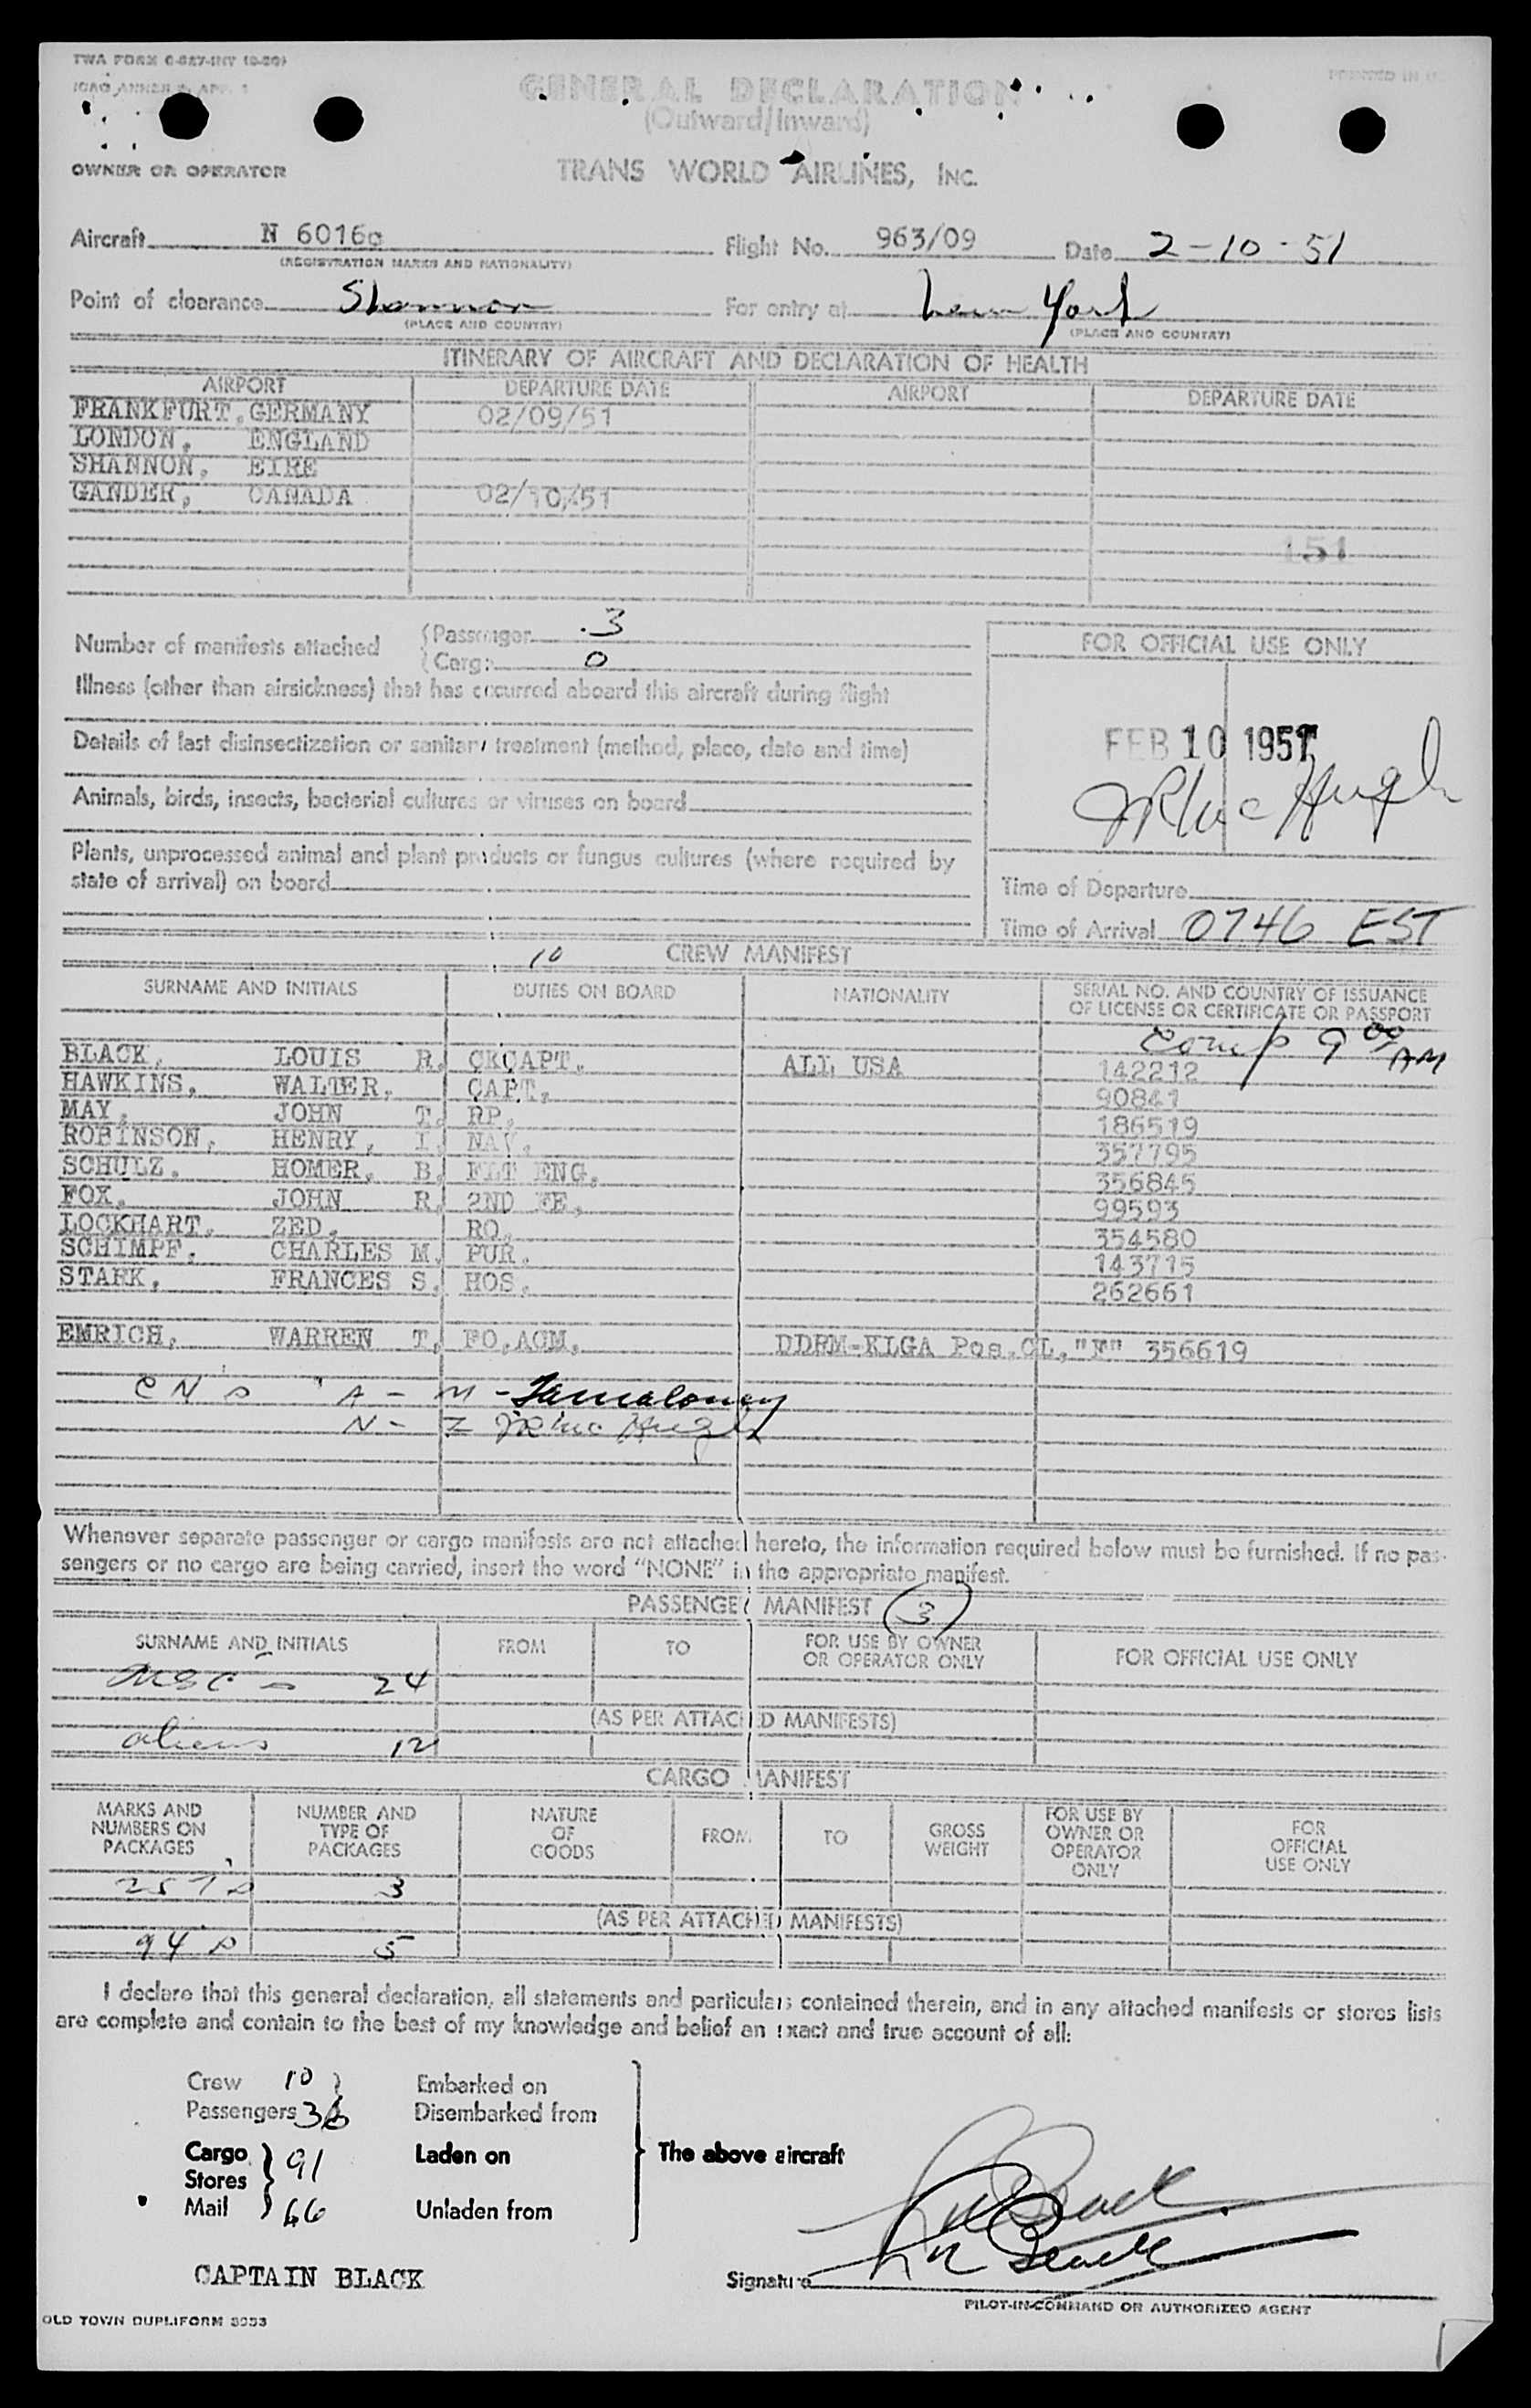 TWA FORM
ICAO ANNEX 9, APP. 1
PRINTED IN
GENERAL DECLARATION
(Outward/Inward)
OWNER OR OPERATOR TRANS WORLD AIRLINES, INC.
Aircraft N 6016c Flight No. 963/09 Date 2-10-51
(REGISTRATION MARKS AND NATIONALITY)
Point of clearance Shannon For entry at New York
(PLACE AND COUNTRY) (PLACE AND COUNTRY)
ITINERARY OF AIRCRAFT AND DECLARATION OF HEALTH
AIRPORT DEPARTURE DATE AIRPORT DEPARTURE DATE
FRANKFURT, GERMANY 02/09/51
LONDON, ENGLAND
SHANNON, EIRE
GANDER, CANADA 02/10/51
151
Number of manifests attached
Passenger 3
Cargo 0
Illness (other than airsickness) that has occurred aboard this aircraft during flight
Details of last disinsectization or sanitary treatment (method, place, date and time)
Animals, birds, insects, bacterial cultures or viruses on board
Plants, unprocessed animal and plant products or fungus cultures (where required by
state of arrival) on board
FOR OFFICIAL USE ONLY
FEB 10 1951
JR McHugh
Time of Departure
Time of Arrival 0746 EST
10 CREW MANIFEST
SURNAME AND INITIALS DUTIES ON BOARD NATIONALITY SERIAL NO. AND COUNTRY OF ISSUANCE
OF LICENSE OR CERTIFICATE OR PASSPORT
Comp 9 00 AM
BLACK, LOUIS R. CKCAPT. ALL USA 142212
HAWKINS, WALTER, CAPT. 90841
MAY, JOHN T. RP. 186519
ROBINSON, HENRY, I. NAV. 357795
SCHULZ, HOMER, B. FLT ENG. 356845
FOX, JOHN R. 2ND FE. 99593
LOCKHART, ZED, RO. 354580
SCHIMPF, CHARLES M. PUR. 143715
STARK, FRANCES S. HOS. 262661
EMRICH, WARREN T. FO,ACM. DDFM-KLGA Pos.CL."F" 356619
A - M -
N - Z JR McHugh
Whenever separate passenger or cargo manifests are not attached hereto, the information required below must be furnished. If no pas-
sengers or no cargo are being carried, insert the word "NONE" in the appropriate manifest.
PASSENGER MANIFEST (3)
SURNAME AND INITIALS FROM TO FOR USE BY OWNER
OR OPERATOR ONLY FOR OFFICIAL USE ONLY
24
(AS PER ATTACHED MANIFESTS)
aliens 12
CARGO MANIFEST
MARKS AND
NUMBERS ON
PACKAGES
NUMBER AND
TYPE OF
PACKAGES
NATURE
OF
GOODS
FROM
TO
GROSS
WEIGHT
FOR USE BY
OWNER OR
OPERATOR
ONLY
FOR
OFFICIAL
USE ONLY
257 3
(AS PER ATTACHED MANIFESTS)
94 5
I declare that this general declaration, all statements and particulars contained therein, and in any attached manifests or stores lists
are complete and contain to the best of my knowledge and belief an exact and true account of all:
Crew 10 Embarked on
Passengers 36 Disembarked from
Cargo 91 Laden on The above aircraft
Stores
Mail 66 Unladen from
CAPTAIN BLACK
L R Black
L R Black
Signature
PILOT-IN-COMMAND OR AUTHORIZED AGENT
OLD TOWN DUPLIFORM